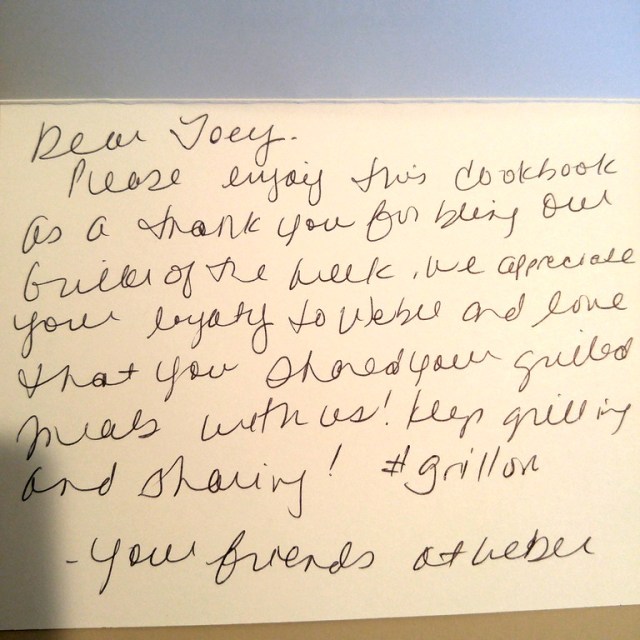 Dear Joey.
Please enjoy this cookbook
as a thank you for being our
Griller of the week. We appreciate
your loyalty to Weber and love
that you shared your grilled
meals with us! Keep grilling
and sharing! #grillon
- Your friends at Weber